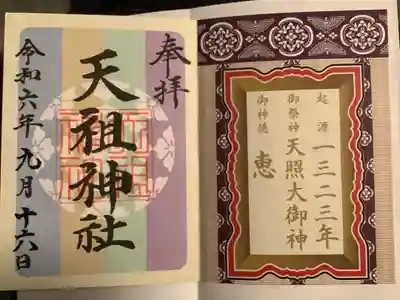 起源 一三二三年
御祭神 天照大御神
御神徳 恵
奉拝
天祖神社
令和六年 九月 十六日